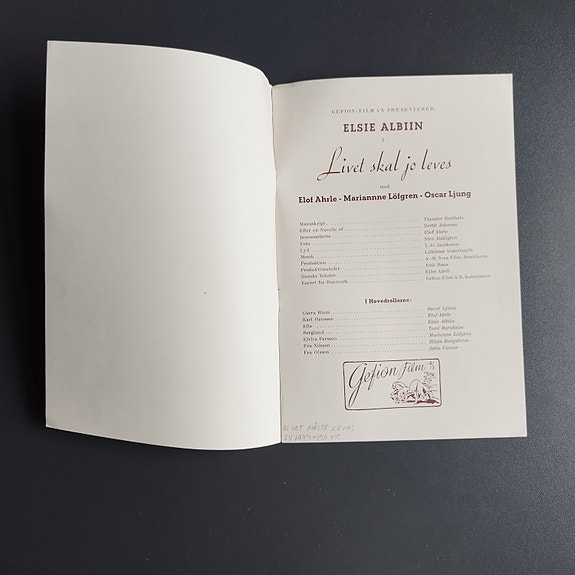 GEFION-FILM A/S PRÆSENTERER:
ELSIE ALBIIN
i
Livet skal jo leves
med
Elof Ahrle - Mariannne Löfgren - Oscar Ljung
Manuskript Theodor Berthels
Efter en Novelle af Bertil Johnson
Iscenesættelse Elof Ahrle
Foto Sven Dahlgren
Lyd
Musik
Produktion A.-B. Svea Film, Stockholm
Produktionsleder
Danske Tekster
Eneret for Danmark Gefion-Film A/S, København
I Hovedrollerne:
Gurra Blom Oscar Ljung
Karl Hansson Elof Ahrle
Ella Elsie Albiin
Berglund
Elvira Persson Marianne Löfgren
Fru Nilsson Hilda Borgström
Fru Olsson Julia Cæsar
Gefion Film A/S
LIVET MÅSTE LEVAS